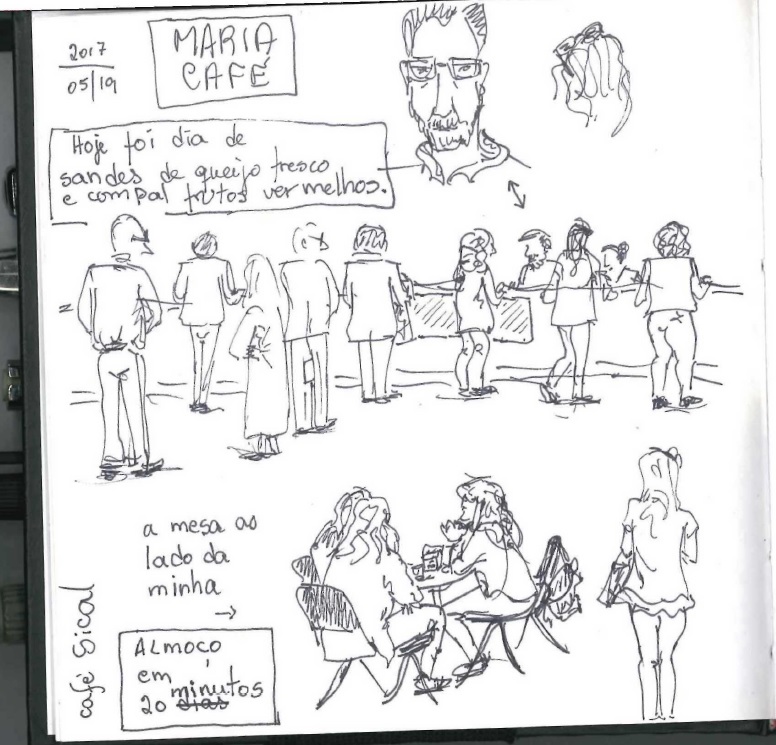 2017
05/19
MARIA
CAFÉ
Hoje foi dia de
sandes de queijo fresco
e compal frutos vermelhos.
a mesa ao
lado da
minha
café Sical
ALMOÇO
em
20 minutos
dias